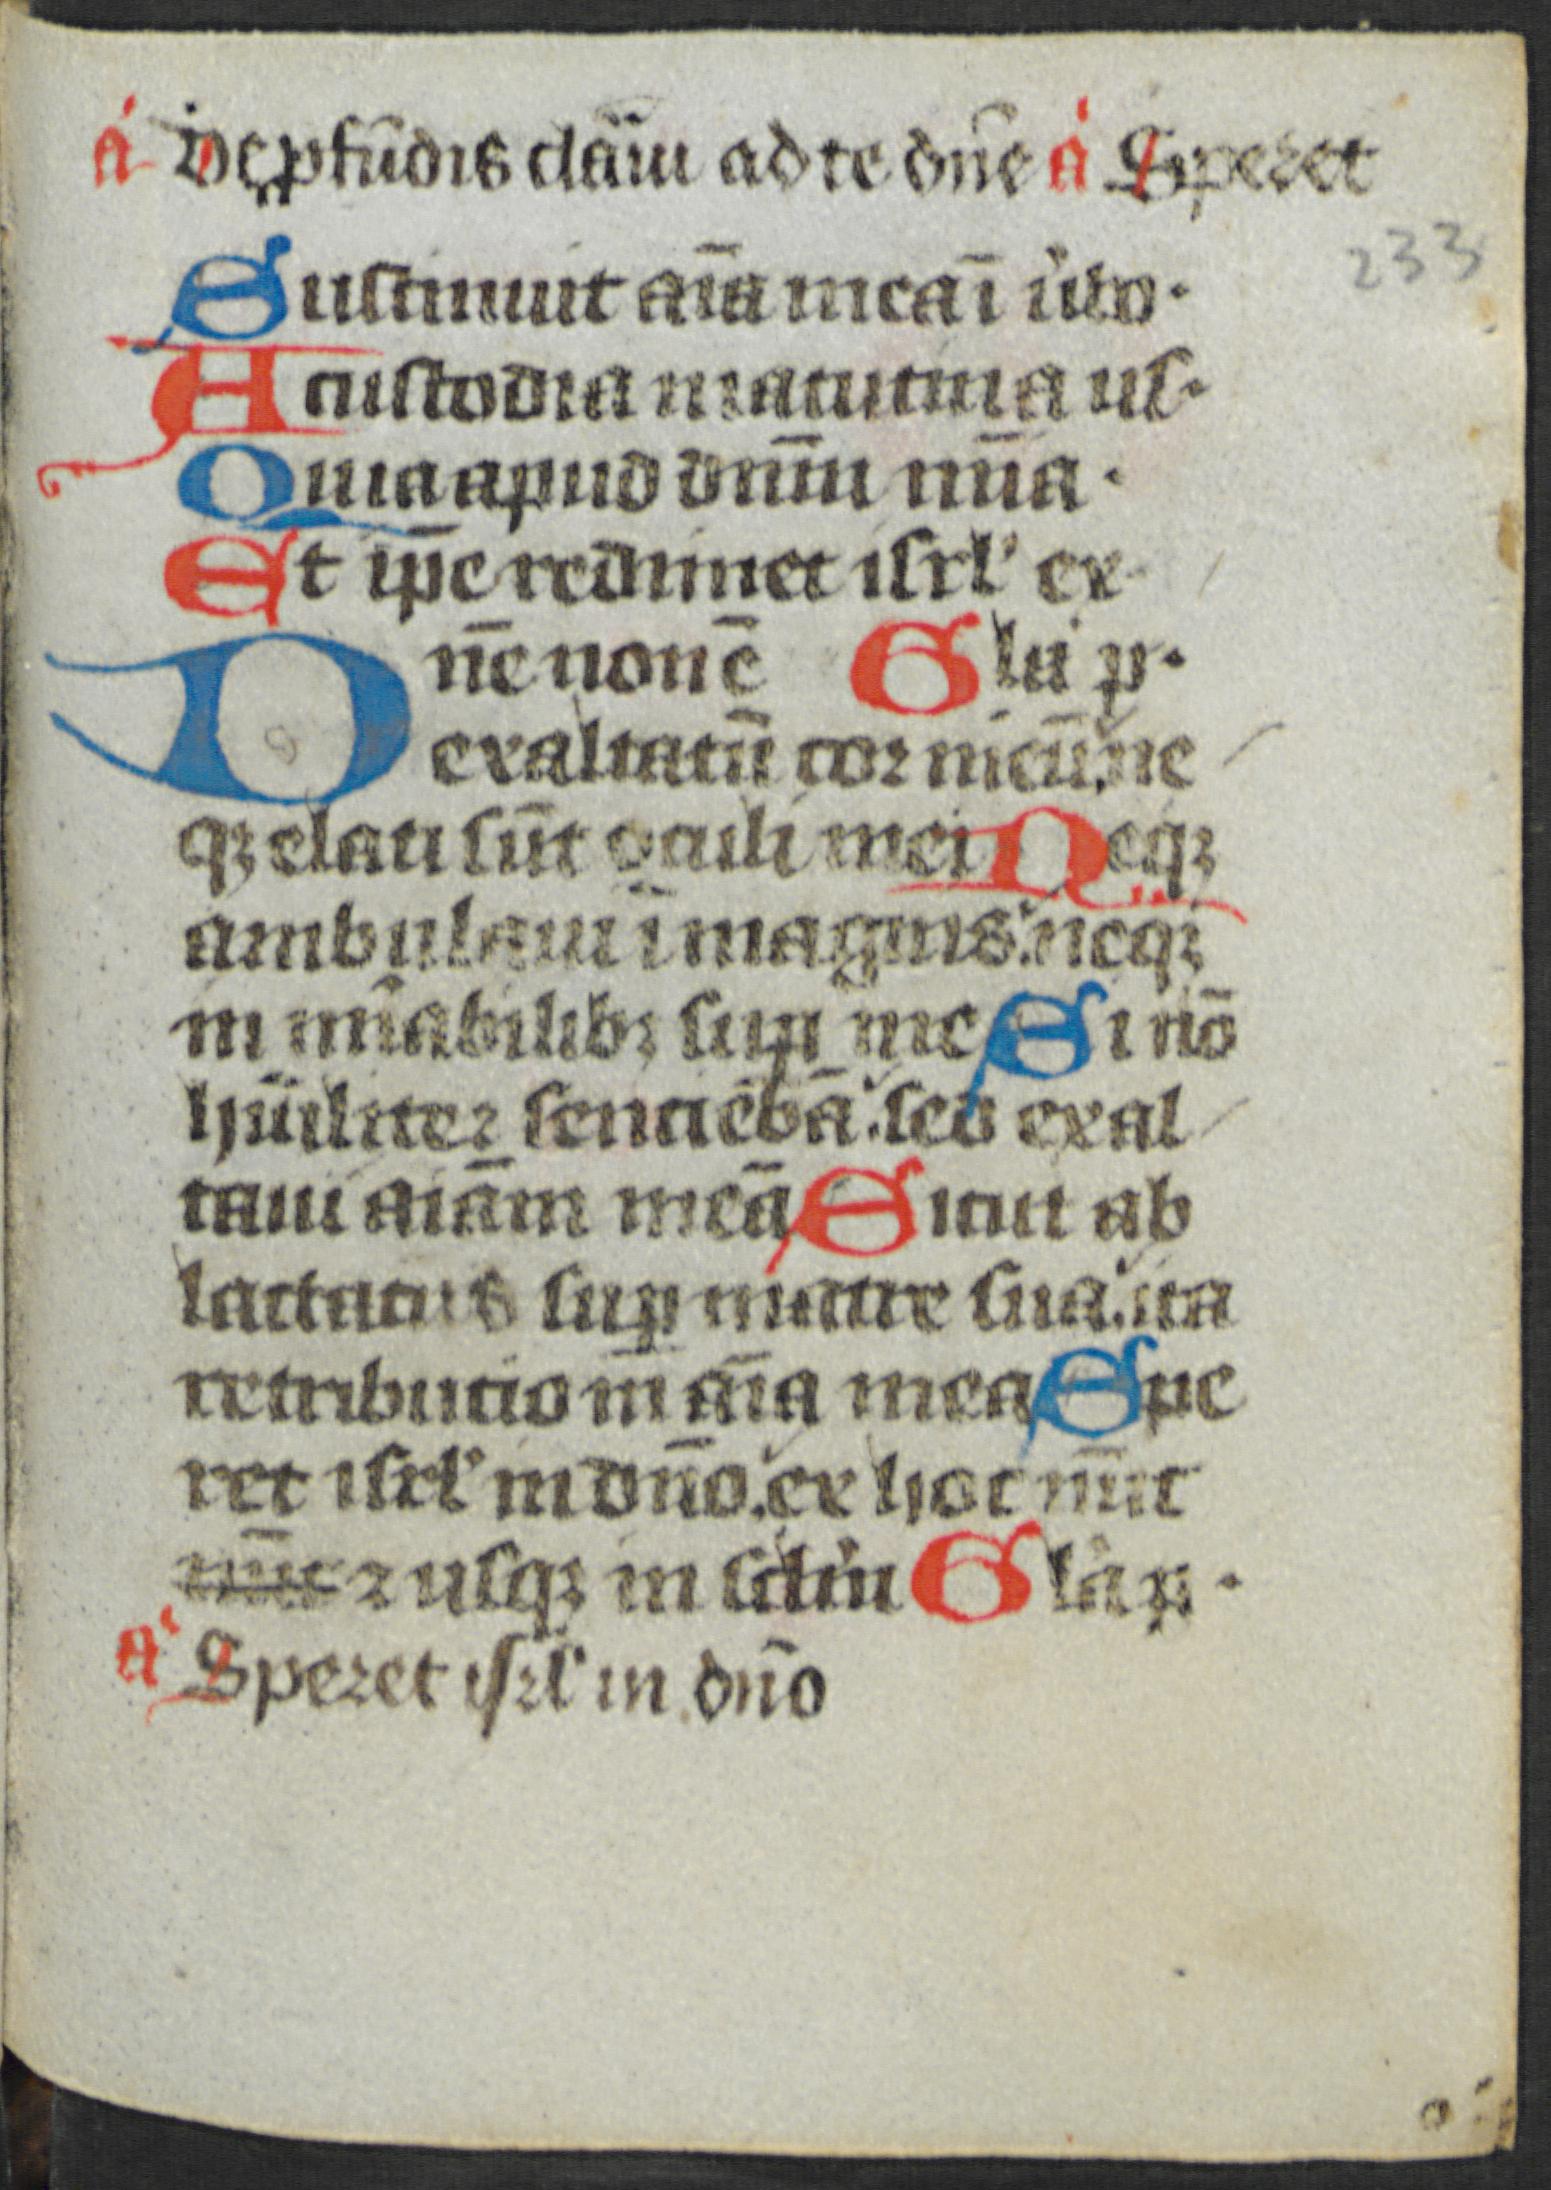 a̾ De ꝓfūdis clāui ad te dn̄e a̾ Speret
233
Sustinuit aīa mea ī ỉbo·
A custodia matutina us·
Quia apud dn̄m mi̅a·
Et ip̄e redimet isrl̓ ex
Dn̄e non ē Gl̓ia p·
exaltatū cor meū. ne
qꝫ elati sūt oculi mei Neqꝫ
ambulaui ī magnis. neqꝫ
in mi̅abilibꝫ suꝑ me Si nō
hūiliter sentiēbā. sed exal
taui aīam meā Sicut ab
lactatus suꝑ matre sua. ita
retributio in aīa mea Spe
ret isrl̓ in dn̄o. ex hoc nūc
nūc ⁊ usqꝫ in sc̄lm̄ Gl̓ia p·
a̾ Speret isrl̓ in dn̄o